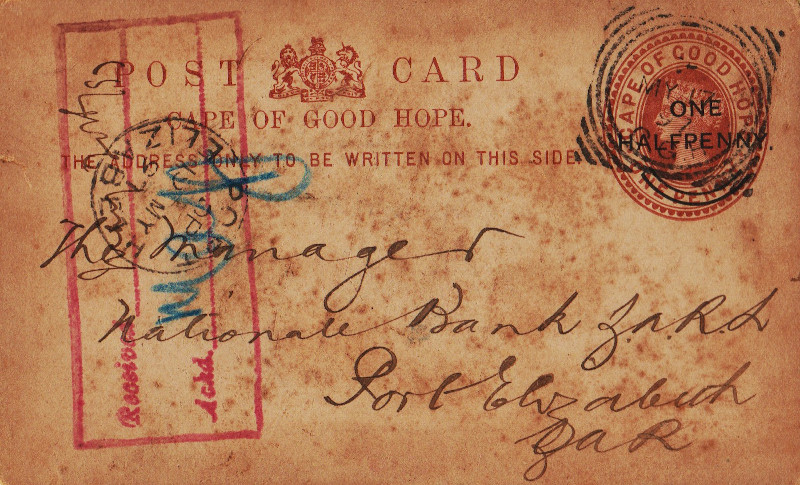 POST CARD
CAPE OF GOOD HOPE.
THE ADDRESS ONLY TO BE WRITTEN ON THIS SIDE
CAPE OF GOOD HOPE
ONE PENNY
ONE
HALFPENNY.
MY
The Manager
Nationale Bank Z.A.R L
Port Elizabeth
ZAR
Received